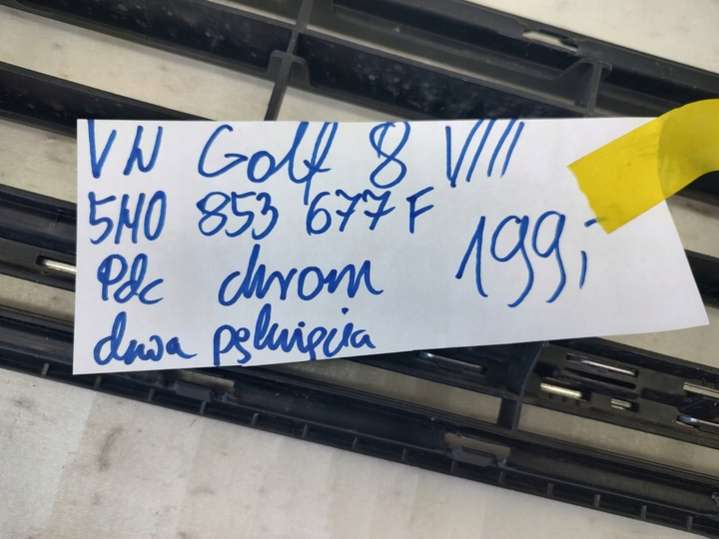 VW Golf 8 VIII
5H0 853 677 F
199,-
Pdc chrom
dwa pęknięcia